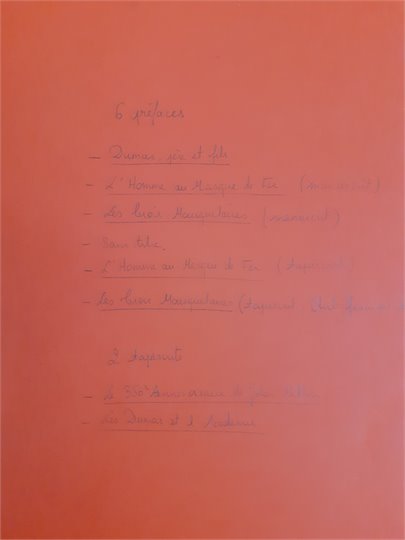 6 préfaces
- Dumas, père et fils
- L'Homme au Masque de Fer (manuscrit)
- Les Trois Mousquetaires (manuscrit)
- Sans titre.
- L'Homme au Masque de Fer (tapuscrit)
- Les Trois Mousquetaires (tapuscrit. Club
2 tapuscrits
- Le 350e Anniversaire de
- Les Dumas et l'Académie